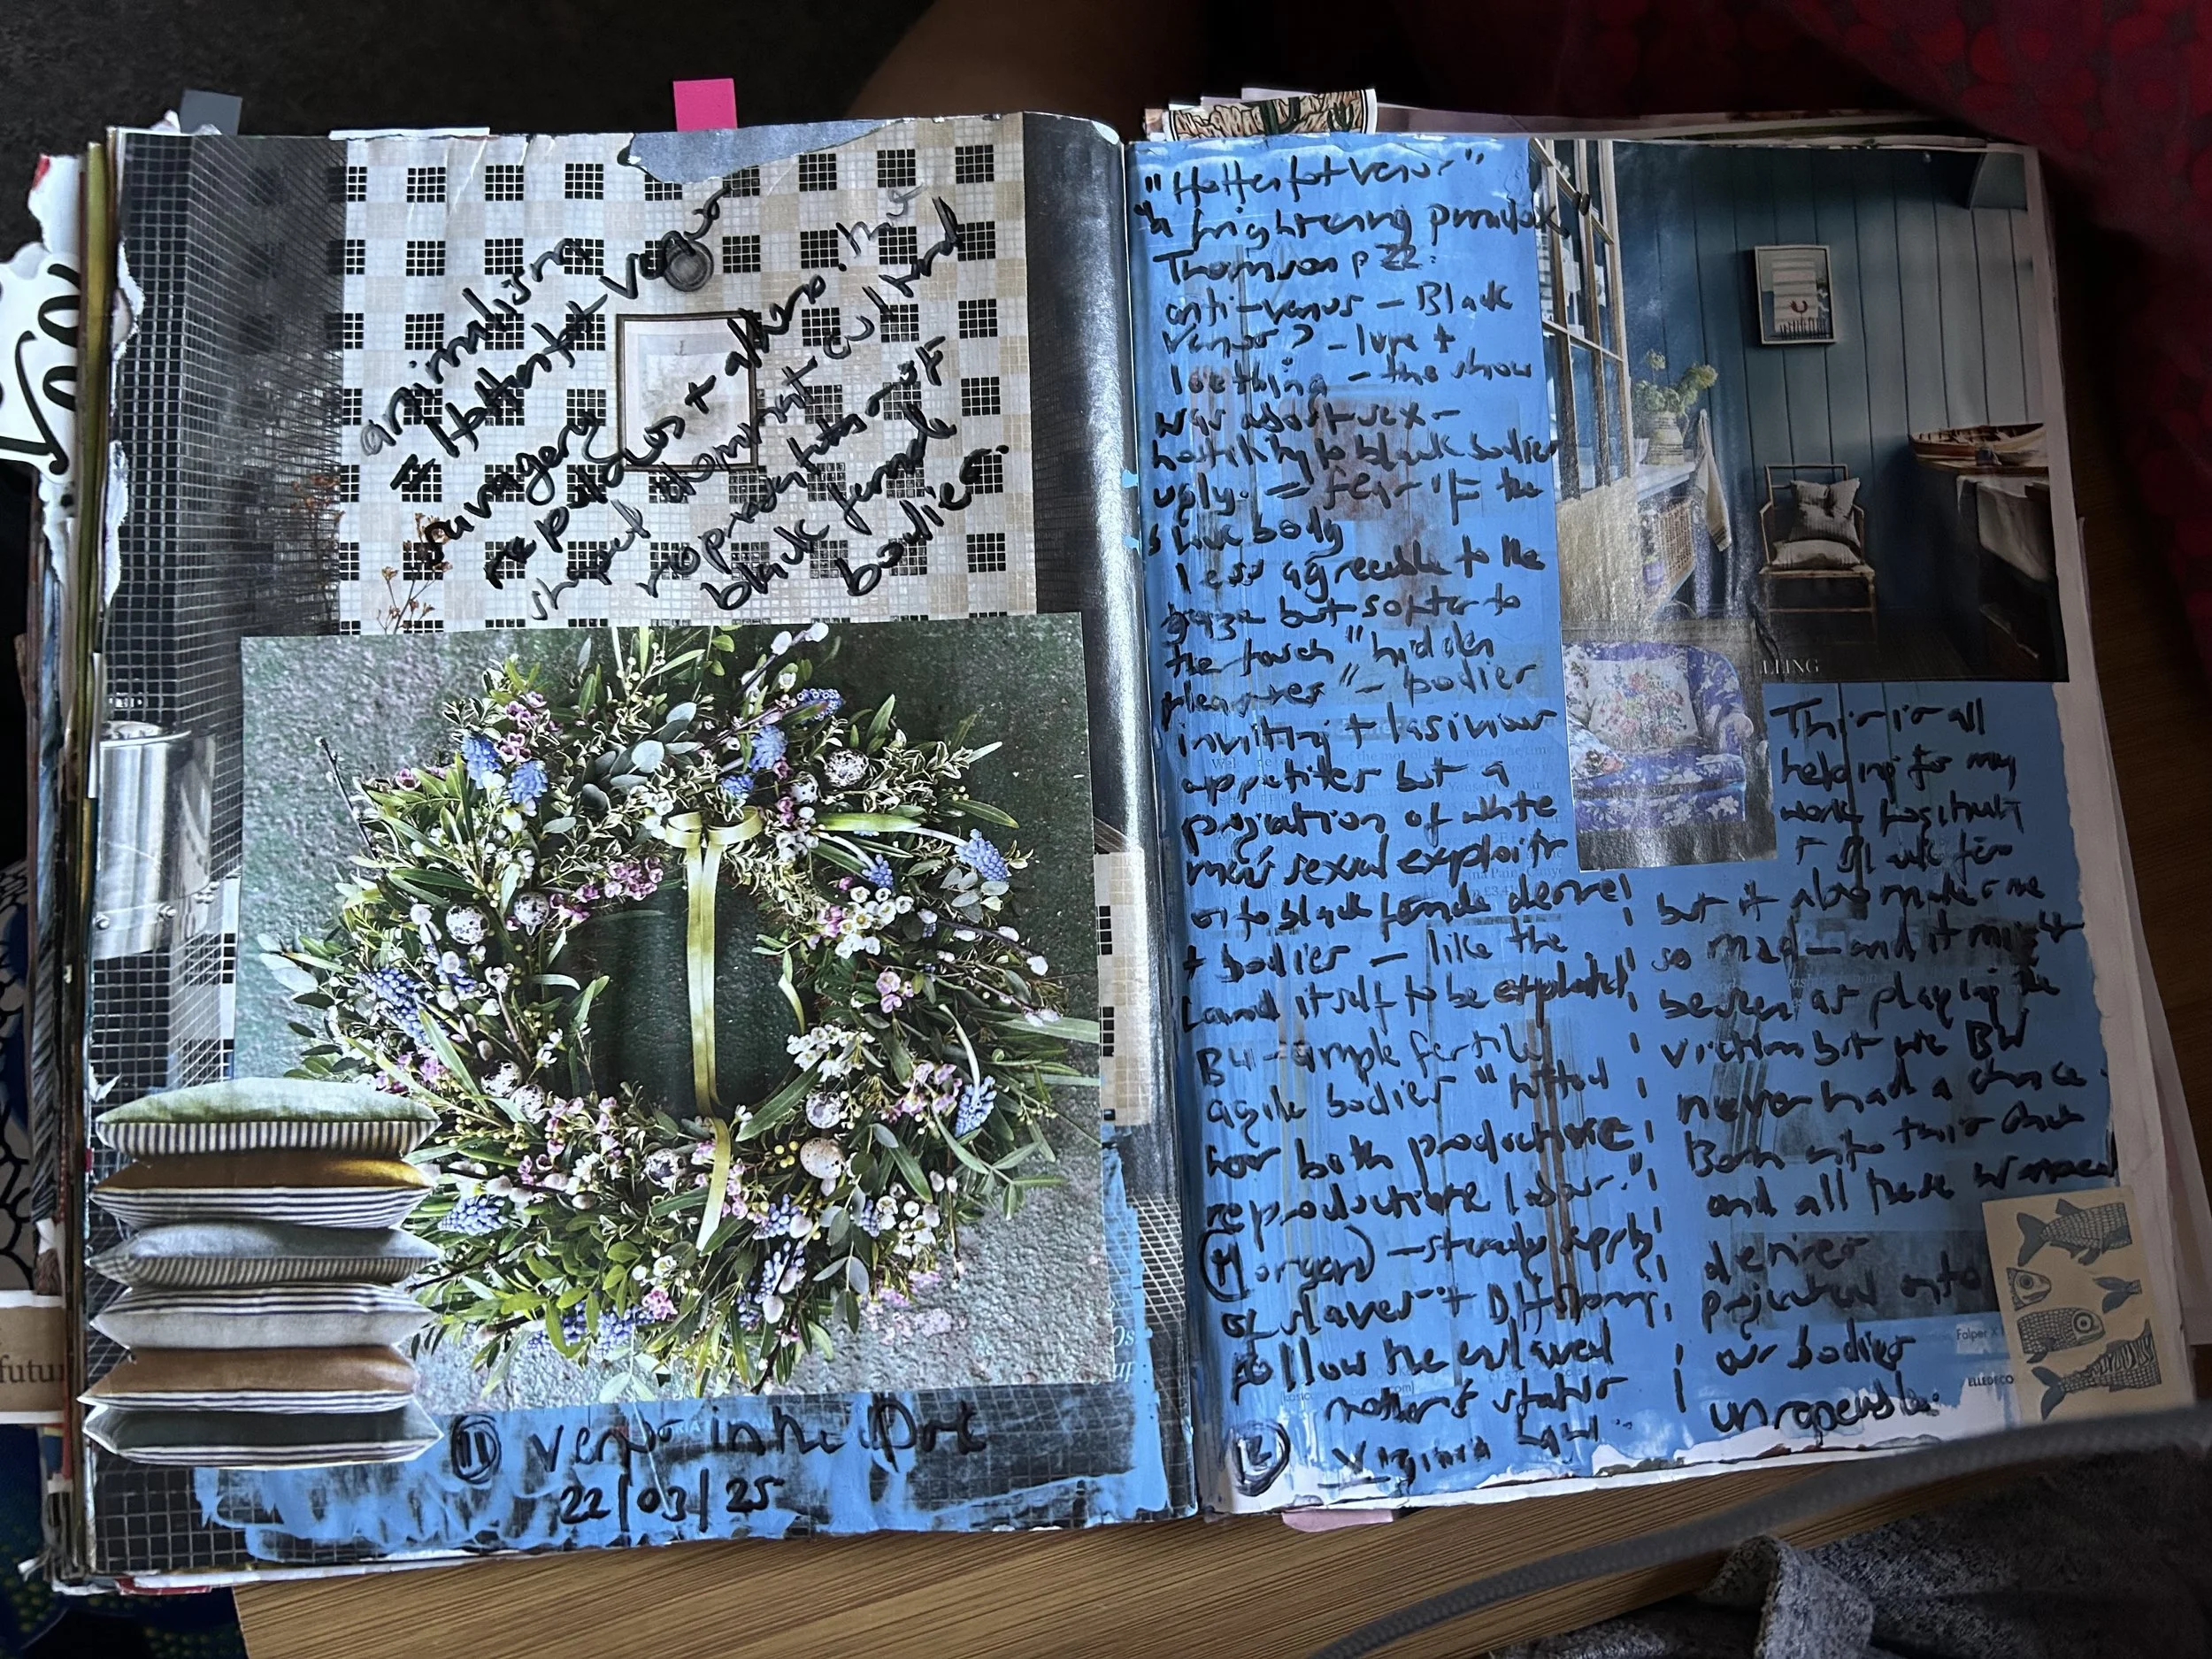 animalising
Hottentot Venus
savagery
repulses + allure. has
shaped dominant cultural
representations of
black female
bodies.
11 Venus in the Dark
22/03/25
"Hottentot Venus"
"a frightening paradox"
Thomson p 22.
anti-venus - Black
Venus? - lure +
loathing - the show
was about sex -
hostility to black bodies
ugly. = fear of the
slave body
less agreeable to the
gaze but softer to
the touch "hidden
pleasures" - bodies
inviting + lasivious
appetites but a
projection of white
men's sexual exploits
onto black female desire
+ bodies - like the
land itself to be exploited
BW - ample fertile
agile bodies "
for both productive
reproductive labour."
(Morgan) - steady supply
of slaves +
follow the enslaved
mother's status
Virginia Law
12
LLING
This is all
helping for my
work
but it also makes me
so mad - and it might
be seen as playing the
victim but we BW
never had a chance.
Born into this
and all these warped
desires
projected onto
our bodies
unrapeable.
Falper
ELLEDECO
futu